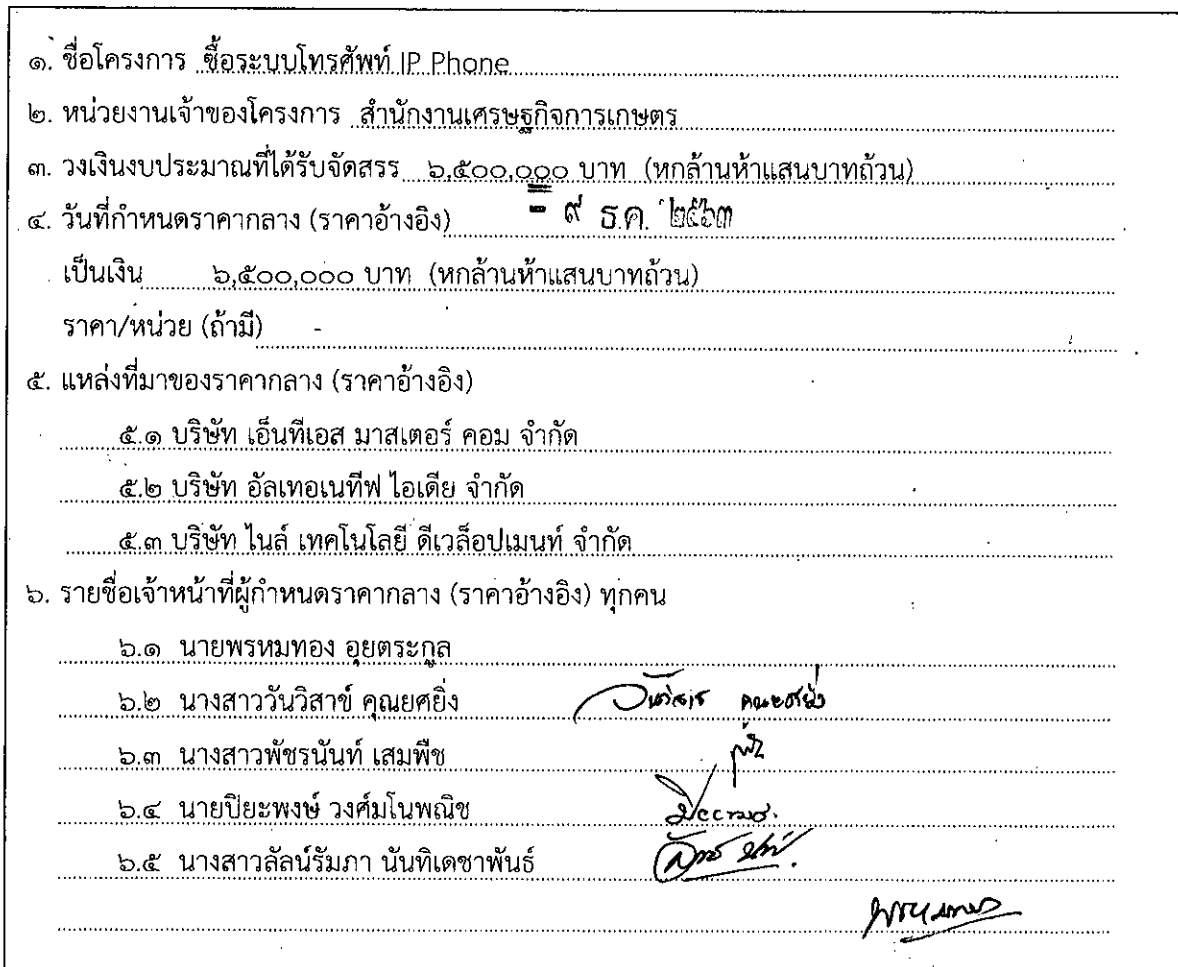 ๑. ชื่อโครงการ ซื้อระบบโทรศัพท์ IP Phone
๒. หน่วยงานเจ้าของโครงการ สำนักงานเศรษฐกิจการเกษตร
๓. วงเงินงบประมาณที่ได้รับจัดสรร ๖,๕๐๐,๐๐๐ บาท (หกล้านห้าแสนบาทถ้วน)
๔. วันที่กำหนดราคากลาง (ราคาอ้างอิง) - ๙ ธ.ค. ๒๕๖๓
เป็นเงิน ๖,๕๐๐,๐๐๐ บาท (หกล้านห้าแสนบาทถ้วน)
ราคา/หน่วย (ถ้ามี) -
๕. แหล่งที่มาของราคากลาง (ราคาอ้างอิง)
๕.๑ บริษัท เอ็นทีเอส มาสเตอร์ คอม จำกัด
๕.๒ บริษัท อัลเทอเนทีฟ ไอเดีย จำกัด
๕.๓ บริษัท ไนล์ เทคโนโลยี ดีเวล็อปเมนท์ จำกัด
๖. รายชื่อเจ้าหน้าที่ผู้กำหนดราคากลาง (ราคาอ้างอิง) ทุกคน
๖.๑ นายพรหมทอง อุยตระกูล
๖.๒ นางสาววันวิสาข์ คุณยศยิ่ง
๖.๓ นางสาวพัชรนันท์ เสมพืช
๖.๔ นายปิยะพงษ์ วงศ์มโนพณิช
๖.๕ นางสาวลัลน์รัมภา นันทิเดชาพันธ์